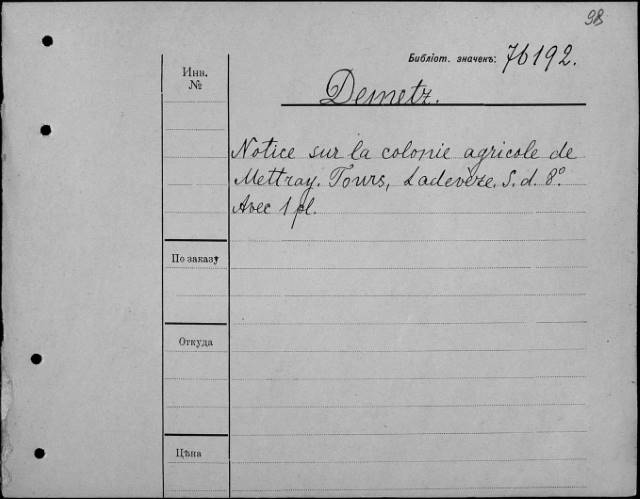 98
Библіот. значекъ: 76192.
Инв.
№
Demetz.
Notice sur la colonie agricole de
Mettray. Tours, Ladevèze. S. d. 8º.
Avec 1 pl.
По заказу
Откуда
Цѣна